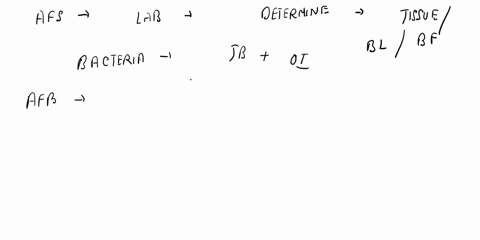 AFS → LAB → DETERMINE → TISSUE/
BL / BF
BACTERIA → TB + OI
AFB →